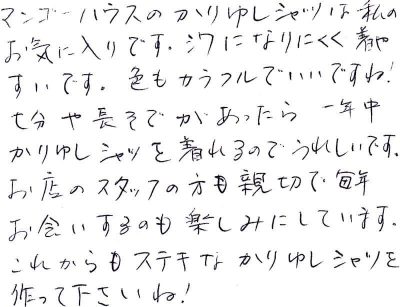 マンゴーハウスのかりゆしシャツは私の
お気に入りです。シワになりにくく着や
すいです。色もカラフルでいいですね!
七分や長そでがあったら一年中
かりゆしシャツを着れるのでうれしいです。
お店のスタッフの方も親切で毎年
お会いするのも楽しみにしています。
これからもステキなかりゆしシャツを
作って下さいね!